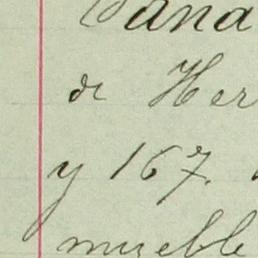 ana
de Her
y 167.
mueble